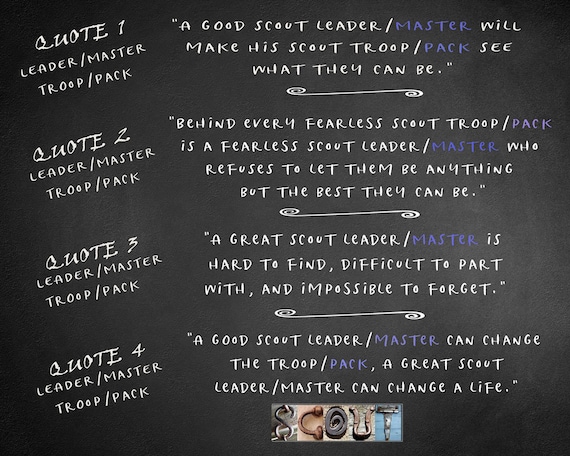 QUOTE 1
LEADER/MASTER
TROOP/PACK
"A GOOD SCOUT LEADER/MASTER WILL
MAKE HIS SCOUT TROOP/PACK SEE
WHAT THEY CAN BE."
QUOTE 2
LEADER/MASTER
TROOP/PACK
"BEHIND EVERY FEARLESS SCOUT TROOP/PACK
IS A FEARLESS SCOUT LEADER/MASTER WHO
REFUSES TO LET THEM BE ANYTHING
BUT THE BEST THEY CAN BE."
QUOTE 3
LEADER/MASTER
TROOP/PACK
"A GREAT SCOUT LEADER/MASTER IS
HARD TO FIND, DIFFICULT TO PART
WITH, AND IMPOSSIBLE TO FORGET."
QUOTE 4
LEADER/MASTER
TROOP/PACK
"A GOOD SCOUT LEADER/MASTER CAN CHANGE
THE TROOP/PACK, A GREAT SCOUT
LEADER/MASTER CAN CHANGE A LIFE."
SCOUT